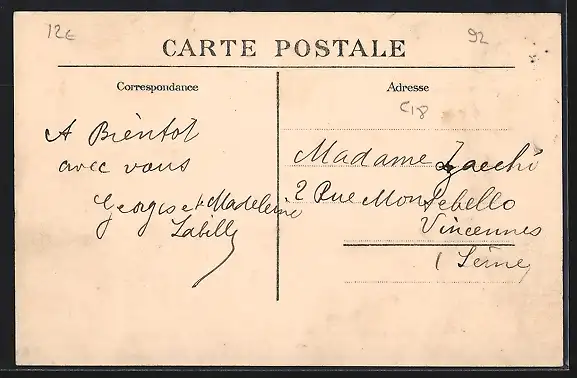 12E
92
CARTE POSTALE
Correspondance
Adresse
C18
A Bientot
avec vous
Georges et Madeleine
Labille
Madame Zaechi
2 Rue Montebello
Vincennes
(Seine)